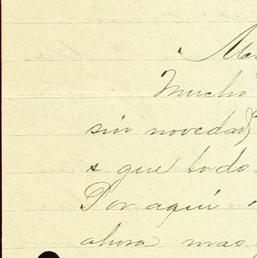 Mucho
sin novedad
s que todo
Por aquí
ahora mas